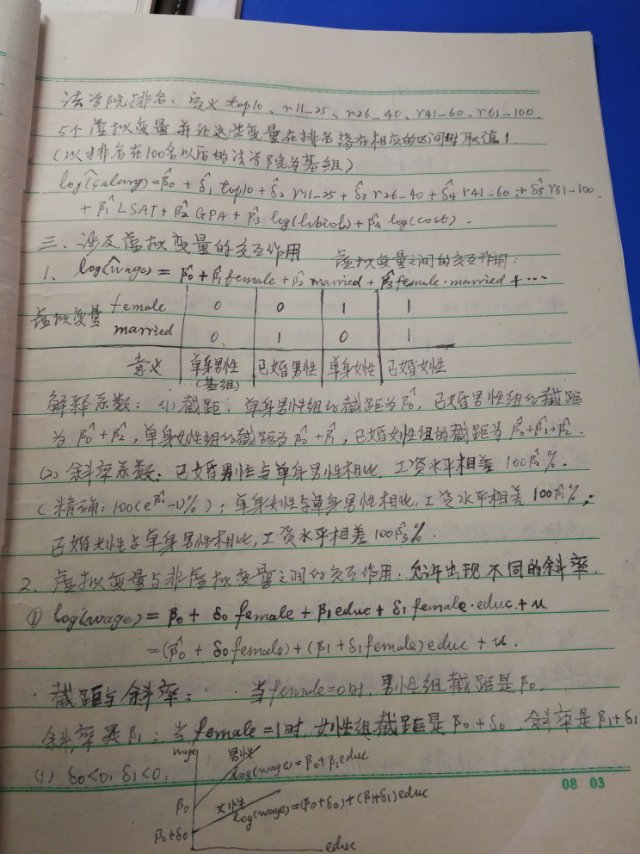 法学院排名、定义 top10、r11_25、r26_40、r41_60、r61_100
5个虚拟变量并让这些变量在排名落在相应的区间时取值1
(以排名在100名以后的法学院为基组)
log(salary)^=β̂0+δ̂1 top10+δ̂2 r11-25+δ̂3 r26-40+δ̂4 r41-60+δ̂5 r61-100
+β̂1 LSAT+β̂2 GPA+β̂3 log(libvol)+β̂4 log(cost).
三、涉及虚拟变量的交互作用
虚拟变量之间的交互作用:
1. log(wage)^=β̂0+β̂1female+β̂2 married+β̂3female·married+…
虚拟变量 female 0 0 1 1
married 0 1 0 1
意义 单身男性(基组) 已婚男性 单身女性 已婚女性
解释系数: (1)截距: 单身男性组的截距为β̂0, 已婚男性组的截距
为β̂0+β̂2, 单身女性组的截距为β̂0+β̂1, 已婚女性组的截距为β̂0+β̂1+β̂2.
(2)斜率系数: 已婚男性与单身男性相比, 工资水平相差100β̂2%.
(精确: 100(e^β̂-1)%); 单身女性与单身男性相比, 工资水平相差100β̂1%;
已婚女性与单身男性相比, 工资水平相差100β̂3%.
2. 虚拟变量与非虚拟变量之间的交互作用: 允许出现不同的斜率.
① log(wage)=β0+δ0 female+β1educ+δ1 female·educ+u
=(β̂0+δ0female)+(β1+δ1female)educ+u.
截距与斜率: 当female=0时, 男性组截距是β0,
斜率是β1; 当female=1时, 女性组截距是β0+δ0, 斜率是β1+δ1
(1) δ0<0, δ1<0.
wage
男性
log(wage)=β0+β1educ
β0
女性
log(wage)=(β0+δ0)+(β1+δ1)educ
β0+δ0
educ
08 03